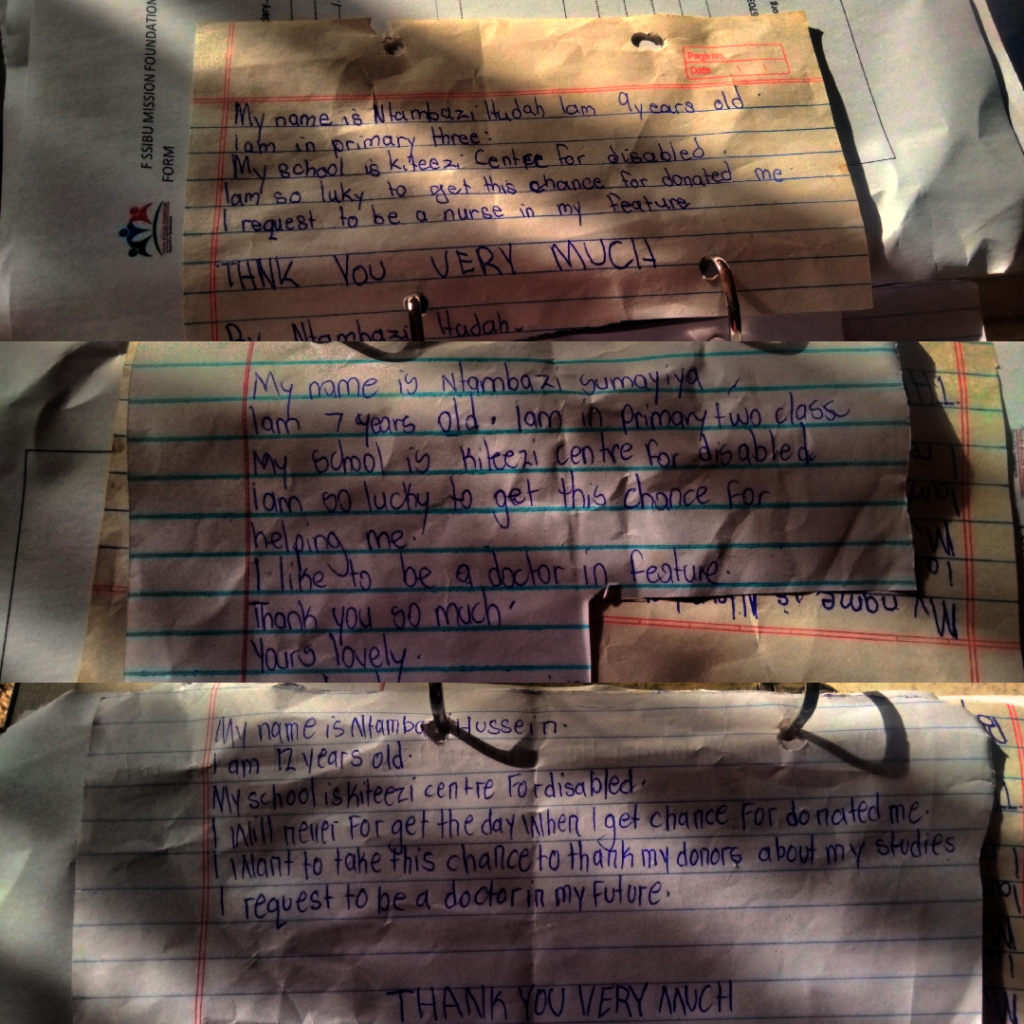 F SSIBU MISSION FOUNDATION
FORM
2025
Page No.
Date
My name is Ntambazi Hudah Iam 9years old.
Iam in primary three:
My school is kiteezi Centre for disabled.
Iam so luky to get this chance for donated me.
I request to be a nurse in my feature
THNK YOU VERY MUCH
By Ntambazi Hudah.
My name is Ntambazi sumayiya
Iam 7 years old. Iam in primary two class
My school is kiteezi centre for disabled
iam so lucky to get this chance for
helping me.
I like to be a doctor in feature.
Thank you so much
Yours lovely.
My name is
My name is Ntamba Hussein.
I am 12 years old.
My school is kiteezi centre For disabled.
I Will never For get the day When I get chance For donated me.
I Want to take this chance to thank my donors about my studies
I request to be a doctor in my Future.
THANK YOU VERY MUCH